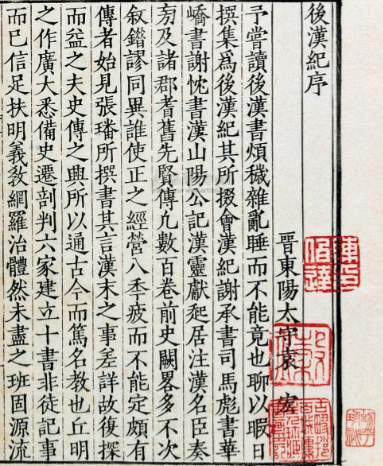 後漢紀序
晉東陽太守袁 宏
予嘗讀後漢書煩穢雜亂睡而不能竟也聊以暇日
撰集為後漢紀其所掇會漢紀謝承書司馬彪書華
嶠書謝忱書漢山陽公記漢靈獻起居注漢名臣奏
旁及諸郡耆舊先賢傳凡數百卷前史闕畧多不次
敘錯謬同異誰使正之經營八秊疲而不能定頗有
傳者始見張璠所撰書其言漢末之事差詳故復探
而益之夫史傳之興所以通古今而篤名教也丘明
之作廣大悉備史遷剖判六家建立十書非徒記事
而已信足扶明義教網羅治體然未盡之班固源流